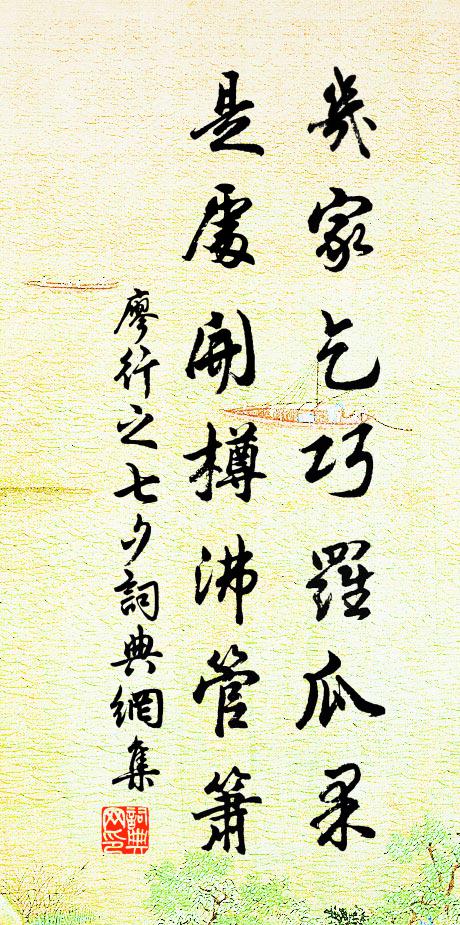 幾家乞巧羅瓜果
是處開樽沸管簫
廖行之七夕詞典網集
詞典網印